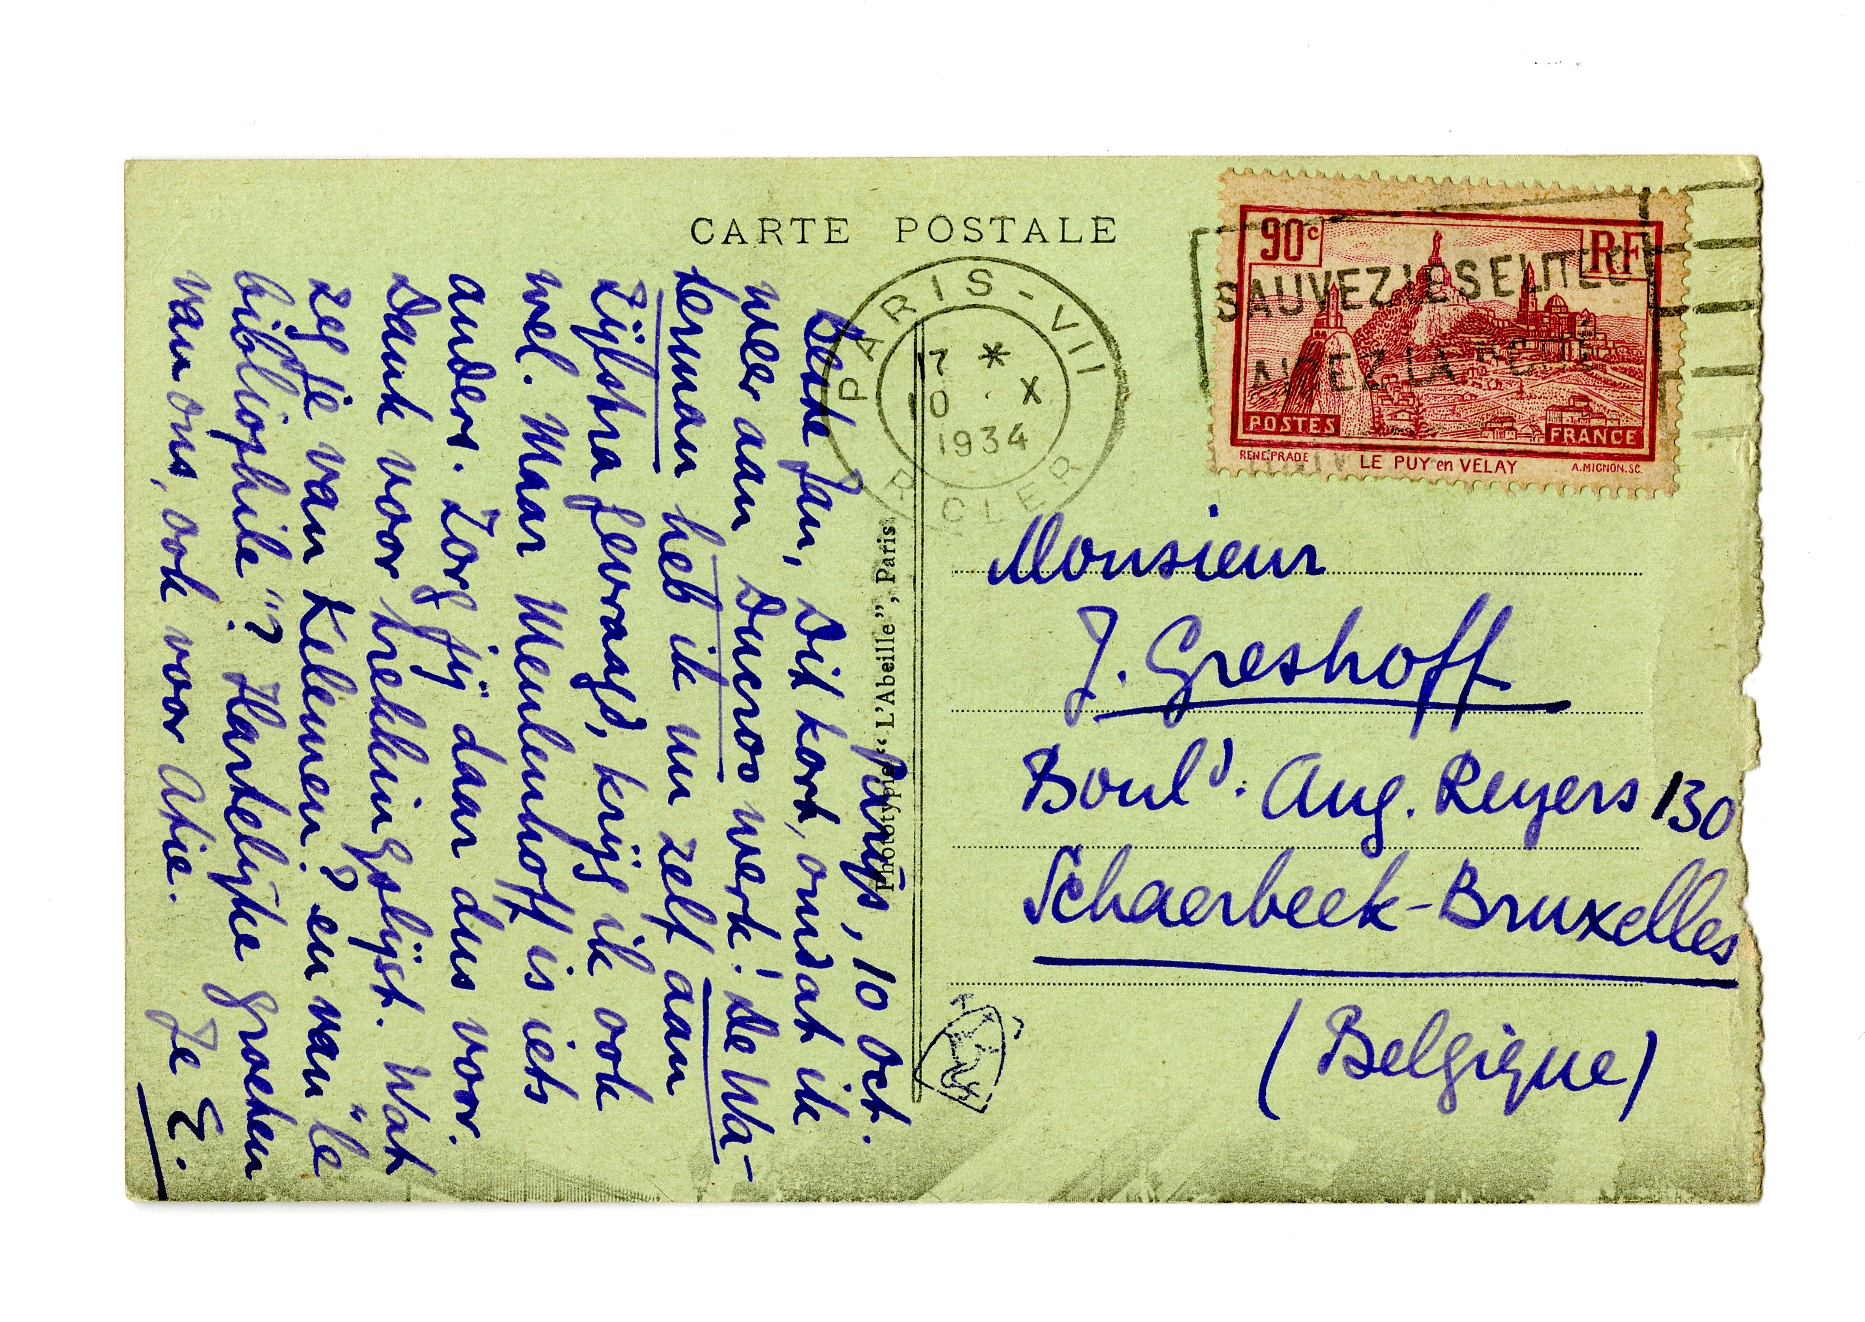 CARTE POSTALE
PARIS-VII
17 *
10 · X
1934
R CLER
SAUVEZ LES ELITES
AIDEZ LA
90c
RF
POSTES
FRANCE
RENE.PRADE
LE PUY en VELAY
A.MIGNON.SC.
Phototypie “L'Abeille”, Paris
Parijs, 10 Oct.
Beste Jan, Dit kort, omdat ik
weer aan Ducroo werk! De Wa-
terman heb ik nu zelf aan
Zijlstra gevraagd, krijg ik ook
wel. Maar Meulenhoff is iets
anders. Zorg jij daar dus voor.
Dank voor trekkingslijst. Wat
zeg je van Kelemen? en van "le
bibliophile"? Hartelijke groeten
van ons, ook voor Atie.
Je E.
Monsieur
J. Greshoff
Boul^d: Aug. Reyers 130
Schaerbeek-Bruxelles
(Belgique)